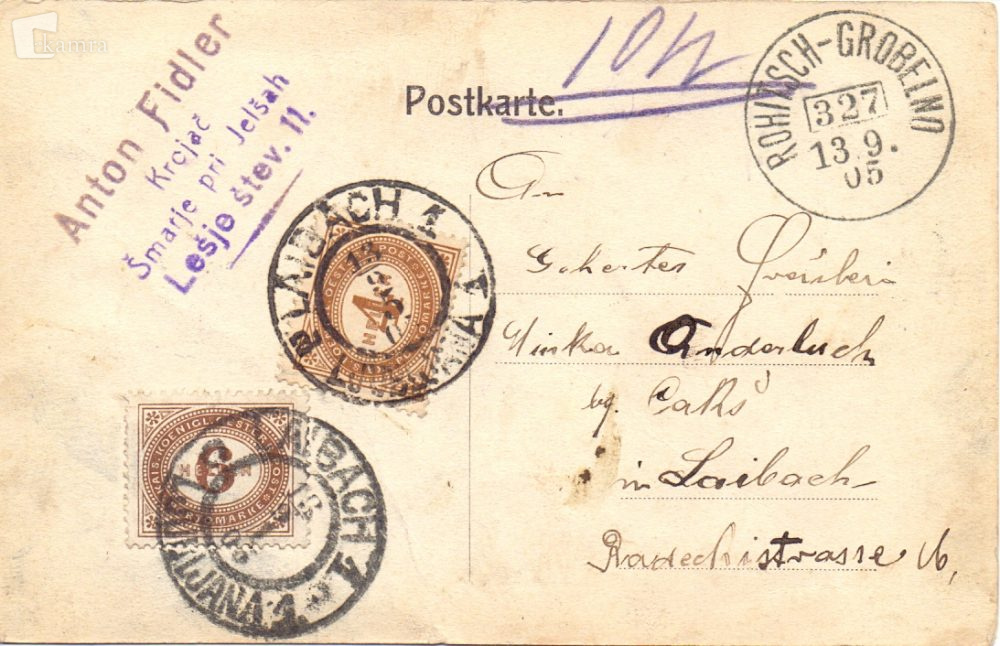 kamra
Anton Fidler
Krojač
Šmarje pri Jelšah
Lešje štev. 11.
Postkarte.
10 h
ROHITSCH-GROBELNO
327
13.9.
05
LAIBACH 1
LJUBLJANA 1
4
6
KAIS. KOENIGL. OESTERR. POST
PORTOMARKE
LAIBACH 1
LJUBLJANA 1.
An
Gehertes
Minka Anderluch
bg. Caks
in Laibach
Radechistrasse 6,